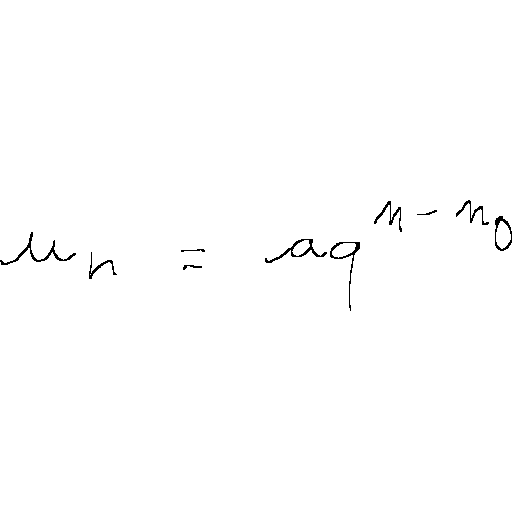 u_n = aq^{n-n_0}